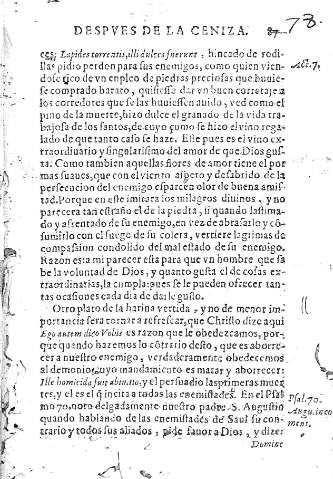 DESPVES DE LA CENIZA. 87 78.
ces; Lapides torrentis, illi dulces fuerunt, hincado de rodi-
llas pidio perdon para sus enemigos, como quien vien-
dose rico de vn empleo de piedras preciosas que huuie-
se comprado barato, quisiesse dar vn buen corretaje a
los corredores que se las huuiessen auido, ved como el
pino de la muerte, hizo dulce el granado de la vida tra-
bajosa de los santos, de cuyo çumo se hizo el vino rega-
lado de que tanto caso se haze. Elle pues es el vino ex-
traordinario y singularissimo del amor de que Dios gus-
ta. Como tambien aquellas flores de amor tiene el por
mas suaues, que con el viento aspero y desabrido de la
persecucion del enemigo esparcen olor de buena amis-
tad. Porque en este imitara los milagros diuinos, y no
parecera tan estraño el de la piedra, si quando lastima-
do y afrentado de su enemigo, en vez de abrasarlo y cõ-
sumirlo con el fuego de su colera, vertiere lagrimas de
compassion condolido del mal estado de su enemigo.
Razon es a mi parecer esta para que vn hombre que sa-
be la voluntad de Dios, y quanto gusta el de cosas ex-
traordinarias, la cumpla: pues se le pueden ofrecer tan-
tas ocasiones cada dia de darle gusto.
Otro plato de la harina vertida, y no de menor im-
portancia sera tornar a refrescar, que Christo dize aqui
Ego autem dico Vobis es razon que le obedezcamos, por-
que quando hazemos lo cõtrario desto, que es aborre-
cer a nuestro enemigo, verdaderamente obedecemos
al demonio, cuyo mandamiento es matar y aborrecer:
Ille homicida fuit ab initio, y el persuadio las primeras muer-
tes, y el es el q̃ incita a todas las enemistades. En el Psal
mo 70. noto delgadamente nuestro padre S. Augustin
quando hablando de las enemistades de Saul su con-
trario y todos sus aliados, pide fauor a Dios, y dize:
Domine
Act. 7.
Psal. 70.
Augu. in co
ment.